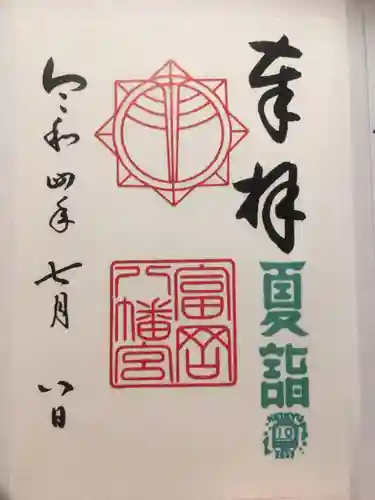 奉拝
夏詣
KEIKYU
2022
富岡
八幡宮
令和四年七月八日